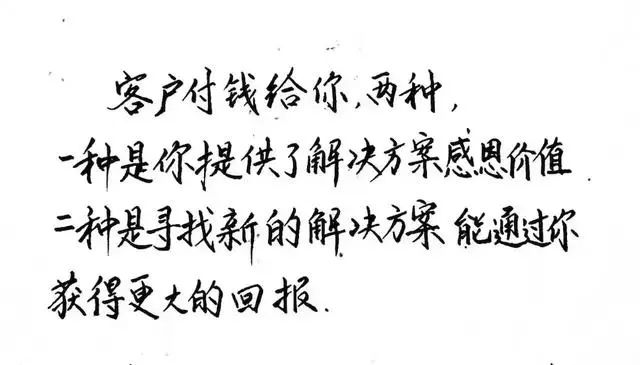 客户付钱给你,两种,
一种是你提供了解决方案感恩价值
二种是寻找新的解决方案能通过你
获得更大的回报.